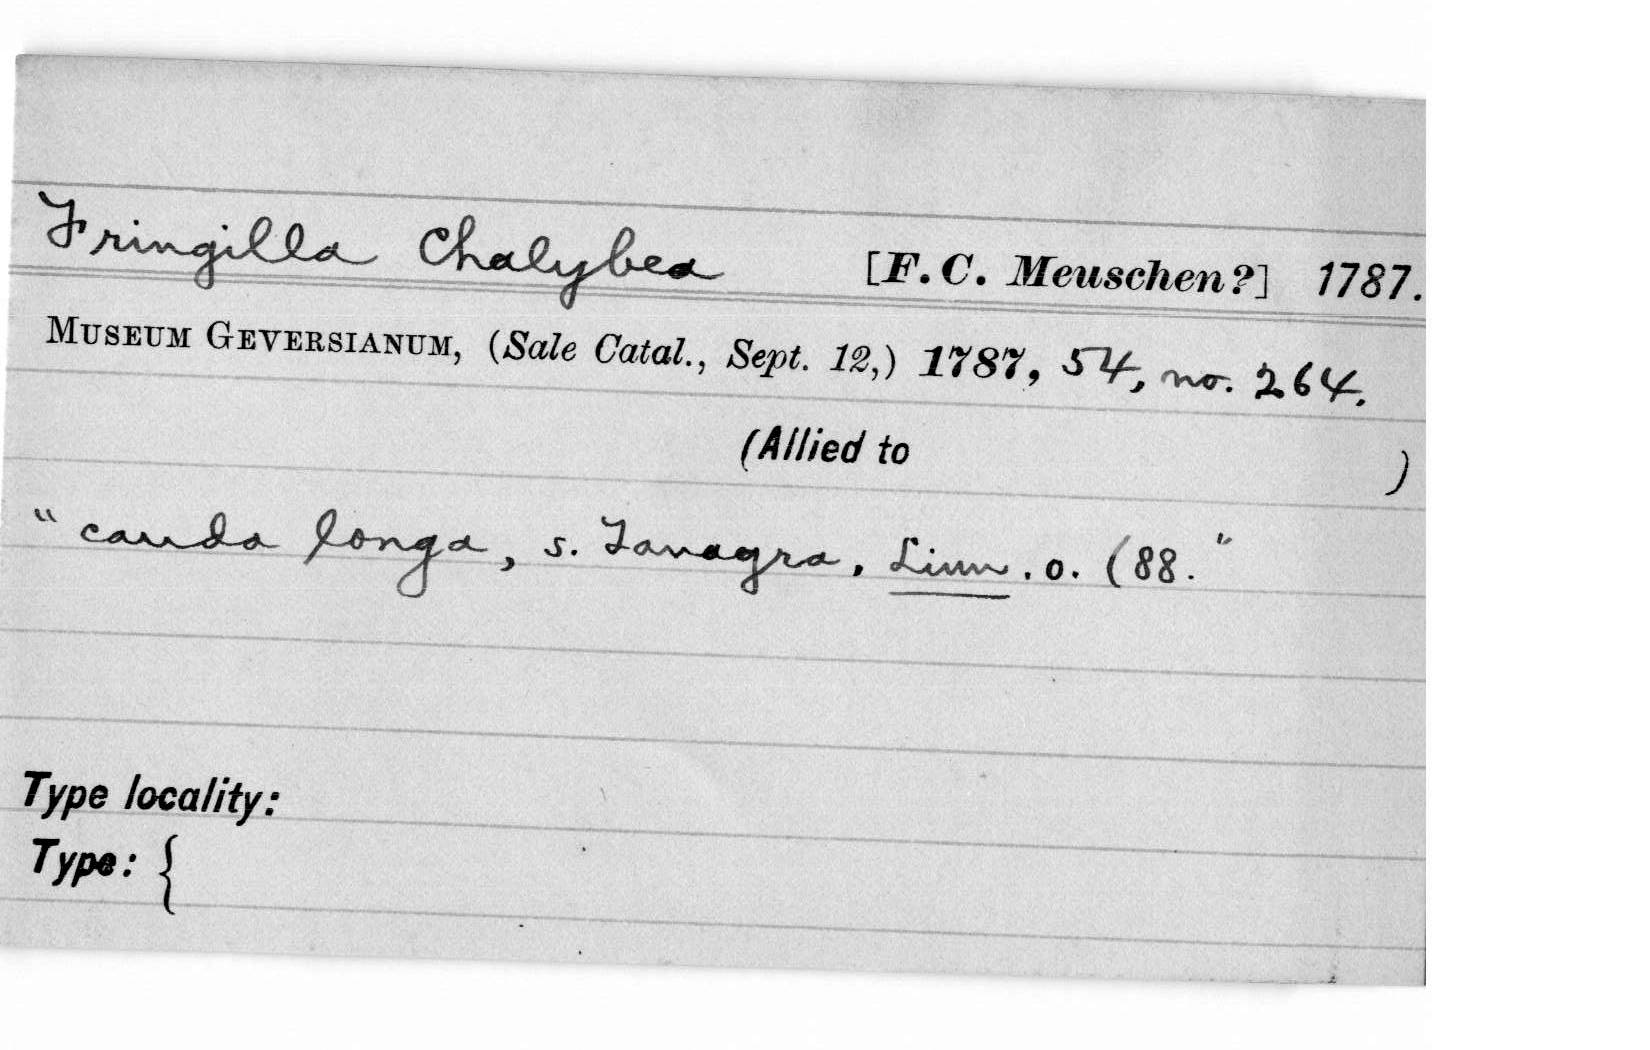 Fringilla Chalybea [F. C. Meuschen?] 1787.
MUSEUM GEVERSIANUM, (Sale Catal., Sept. 12,) 1787, 54, no. 264.
(Allied to )
"cauda longa, s. Tanagra. Linn. o. (88."
Type locality:
Type: {